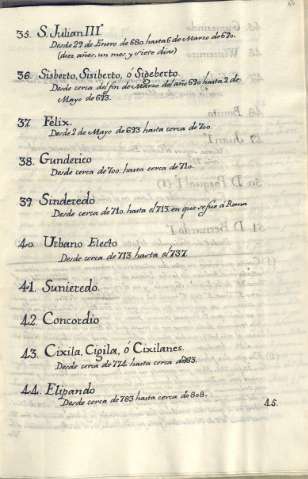 35. S. Julian III°
Desde 29 de Enero de 680. hasta 6 de Marzo de 690.
(diez años, un mes, y siete dias)
36. Sisberto, Sisiberto, ó Sigeberto.
Desde cerca del fin de Marzo del año 690. hasta 2 de
Mayo de 693.
37. Félix.
Desde 2 de Mayo de 693 hasta cerca de 700.
38. Gunderico
Desde cerca de 700. hasta cerca de 710.
39 Sinderedo
Desde cerca de 710. hasta el 713. en que se fue á Roma
40. Urbano Electo
Desde cerca de 713 hasta el 737.
41. Sunieredo.
42. Concordio
43. Cixila, Cigila, ó Cixilanes.
Desde cerca de 774. hasta cerca de 783.
44. Elipando
Desde cerca de 783 hasta cerca de 808.
45.